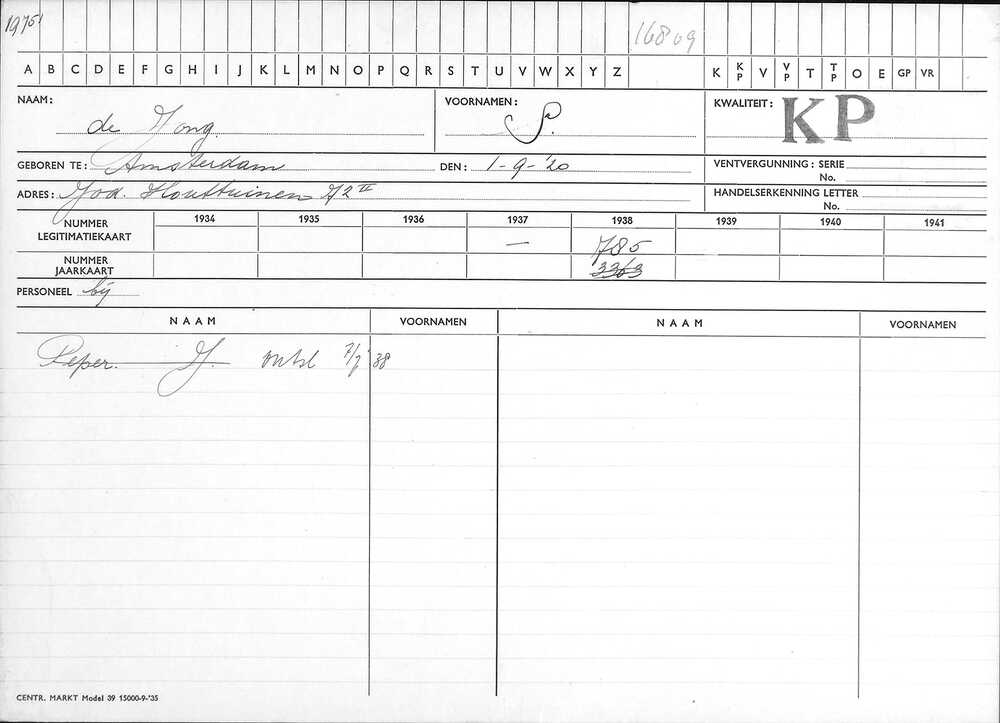 1975!
16809
A B C D E F G H I J K L M N O P Q R S T U V W X Y Z K KP V VP T TP O E GP VR
NAAM: de Jong. VOORNAMEN: S. KWALITEIT: KP
GEBOREN TE: Amsterdam DEN: 1-9-'20 VENTVERGUNNING: SERIE
No.
ADRES: Jod. Houttuinen 72 II HANDELSERKENNING LETTER
No.
1934 1935 1936 1937 1938 1939 1940 1941
NUMMER LEGITIMATIEKAART — 785
NUMMER JAARKAART 3363
PERSONEEL bij
NAAM VOORNAMEN NAAM VOORNAMEN
Peper. J. ontsl 7/7 '38
CENTR. MARKT Model 39 15000-9-'35